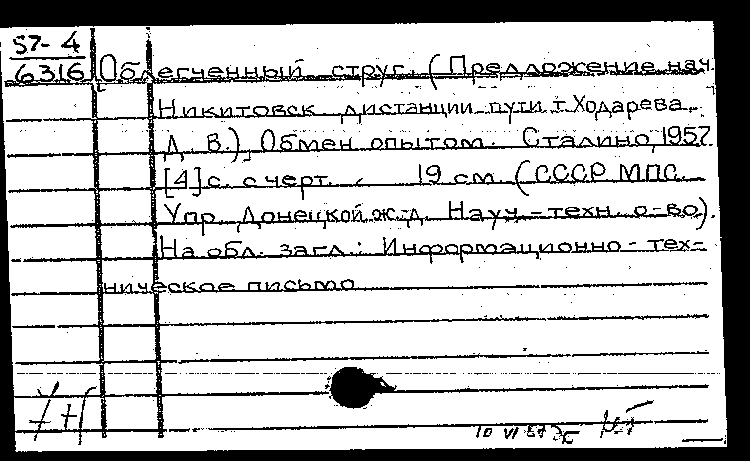 57-4
6316
Облегченный струг. (Предложение нач.
Никитовск дистанции пути т. Ходарева
Д. В.) Обмен опытом. Сталино, 1957.
[4] с. с черт. 19 см (СССР МПС.
Упр. Донецкой ж-д. Науч.-техн. о-во).
На обл. загл.: Информационно-тех-
ническое письмо
10 VI 57